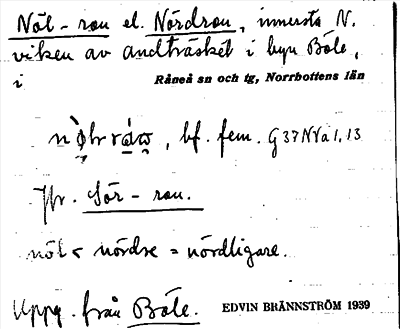 Nöl-rou el. Nördrou, innersta N.
viken av andträsket i byn Böle,
i Råneå sn och tg, Norrbottens län
bf. fem. G37NVa1,13
Jfr. Sör-rou.
nöl < nördre = nördligare.
Uppg. från Böle. EDVIN BRÄNNSTRÖM 1939